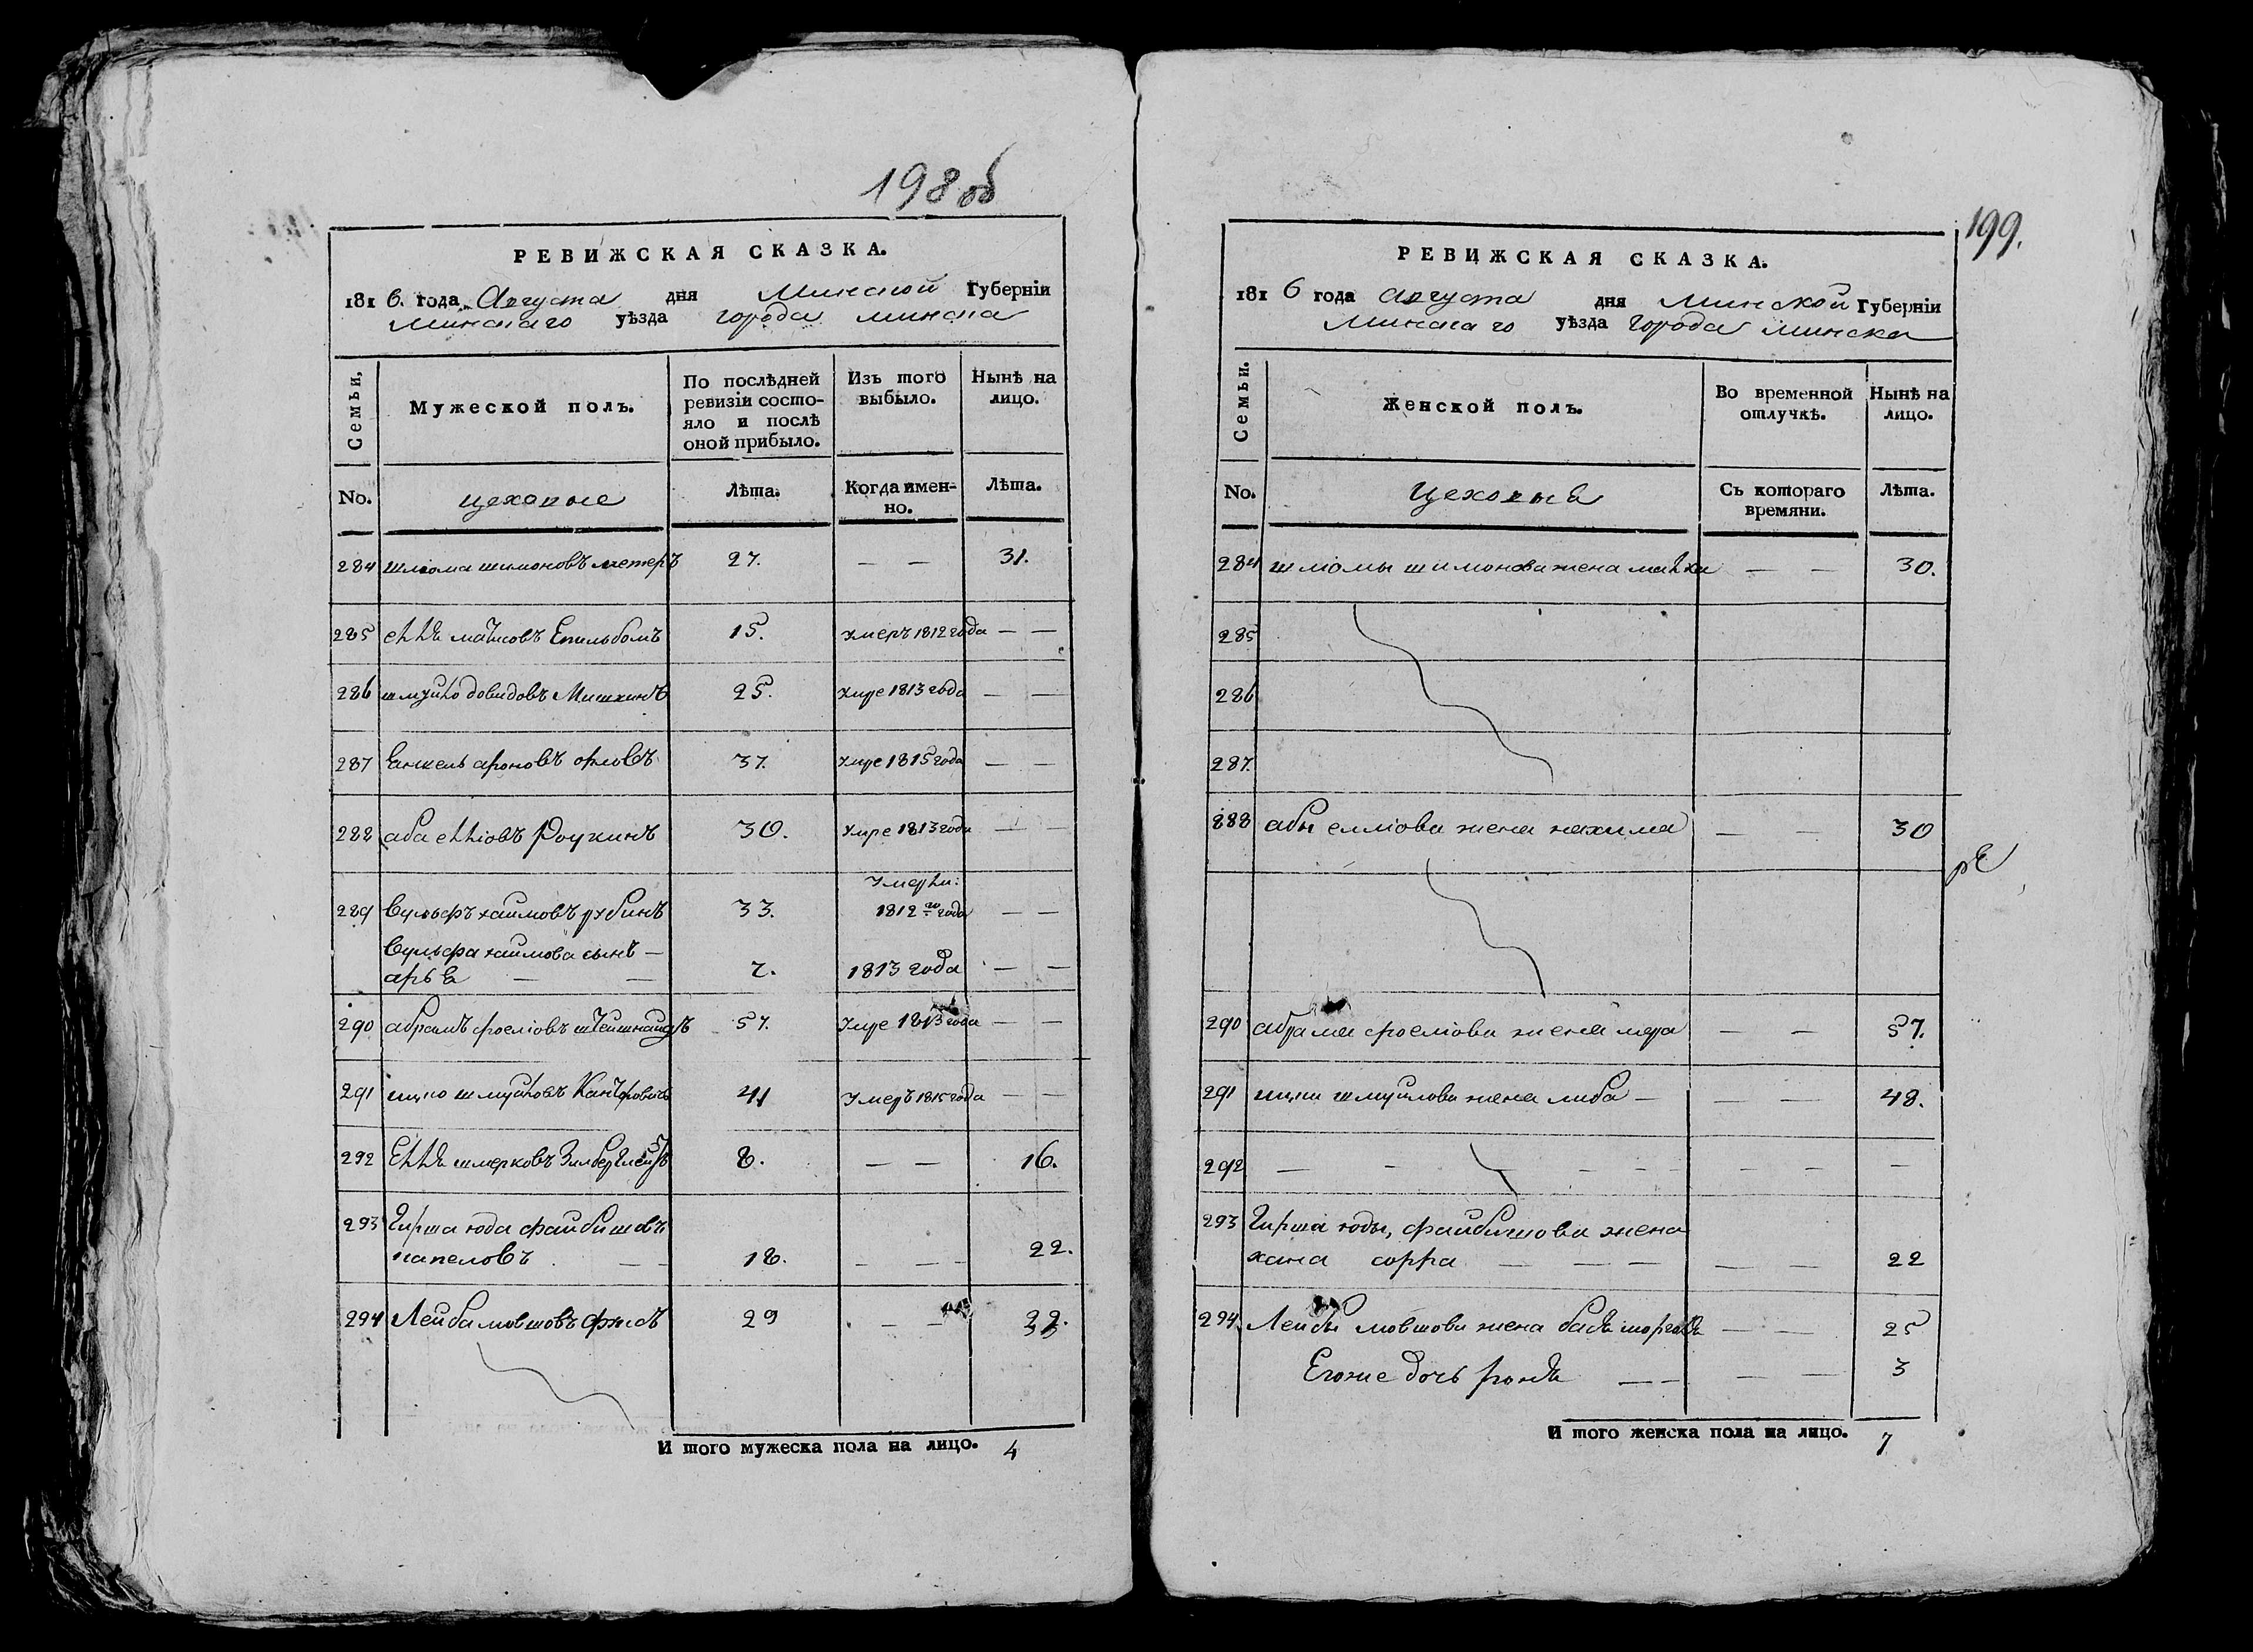 198 об
РЕВИЖСКАЯ СКАЗКА.
181 6. года Августа дня Минской Губерніи
Минскаго уѣзда города минска
Семьи,
Мужеской полъ.
По послѣдней ревизіи состояло и послѣ оной прибыло.
Изъ того выбыло.
Нынѣ на лицо.
No. цеховые Лѣта. Когда имен-но. Лѣта.
284 шліома шимоновъ метеръ 27. — — 31.
285 еллѣ Епильбомъ 15. умеръ 1812 года — —
286 шмуйло довидовъ Мишкинъ 25. умре 1813 года — —
287 Енкель ароновъ орловъ 37. умре 1815 года — —
288 аба елліовъ 30. умре 1813 года — —
умерли:
289 Вульфъ хаимовъ рубинъ 33. 1812 го года — —
Вульфа хаимова сынъ —
арье — — 2. 1813 года — —
290 абрамъ фроеліовъ 57. умре 1813 года — —
291 ицко шмуйловъ Канторовичъ 41 умеръ 1815 года — —
292 Еллѣ шмерковъ 8. — — 16.
293 Гирша юда файбишовъ
капеловъ — — 18. — — 22.
294 Лейба мовшовъ 29 — — 33.
И того мужеска пола на лицо. 4
199.
РЕВИЖСКАЯ СКАЗКА.
181 6 года августа дня минской Губерніи
Минскаго уѣзда города минска
Семьи.
Женской полъ.
Во временной отлучкѣ.
Нынѣ на лицо.
No. цеховые Съ котораго времяни. Лѣта.
284 шліомы шимонова жена малка — — 30.
285
286
287.
288 абы елліова жена нахима — — 30
290 абрама фроеліова жена мера — — 57.
291 ицки шмуйлова жена либа — — — 48.
292 — — — — — — —
293 Гирша юды, файбишова жена
хана сорра — — — — — 22
294. Лейбы мовшова жена — — 25
Егоже дочь роня — — — — 3
И того женска пола на лицо. 7